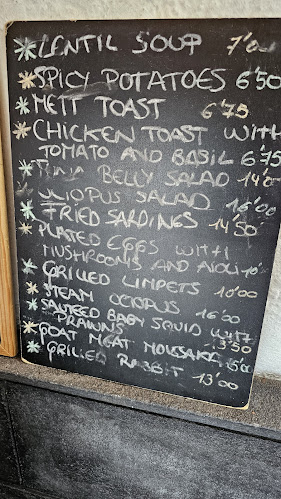 * LENTIL SOUP 7'00
* SPICY POTATOES 6'50
* METT TOAST 6'75
* CHICKEN TOAST WITH
TOMATO AND BASIL 6'75
* TUNA BELLY SALAD 14'00
* OCTOPUS SALAD 16'00
* FRIED SARDINGS 14'50
* PLATED EGGS WITH
MUSHROOMS AND AIOLI
* GRILLED LIMPETS 10'00
* STEAM OCTOPUS 16'00
* SAUTEED BABY SQUID WITH
PRAWNS 13'50
* GOAT MEAT MOUSAKA
* GRILLED RABBIT 13'00